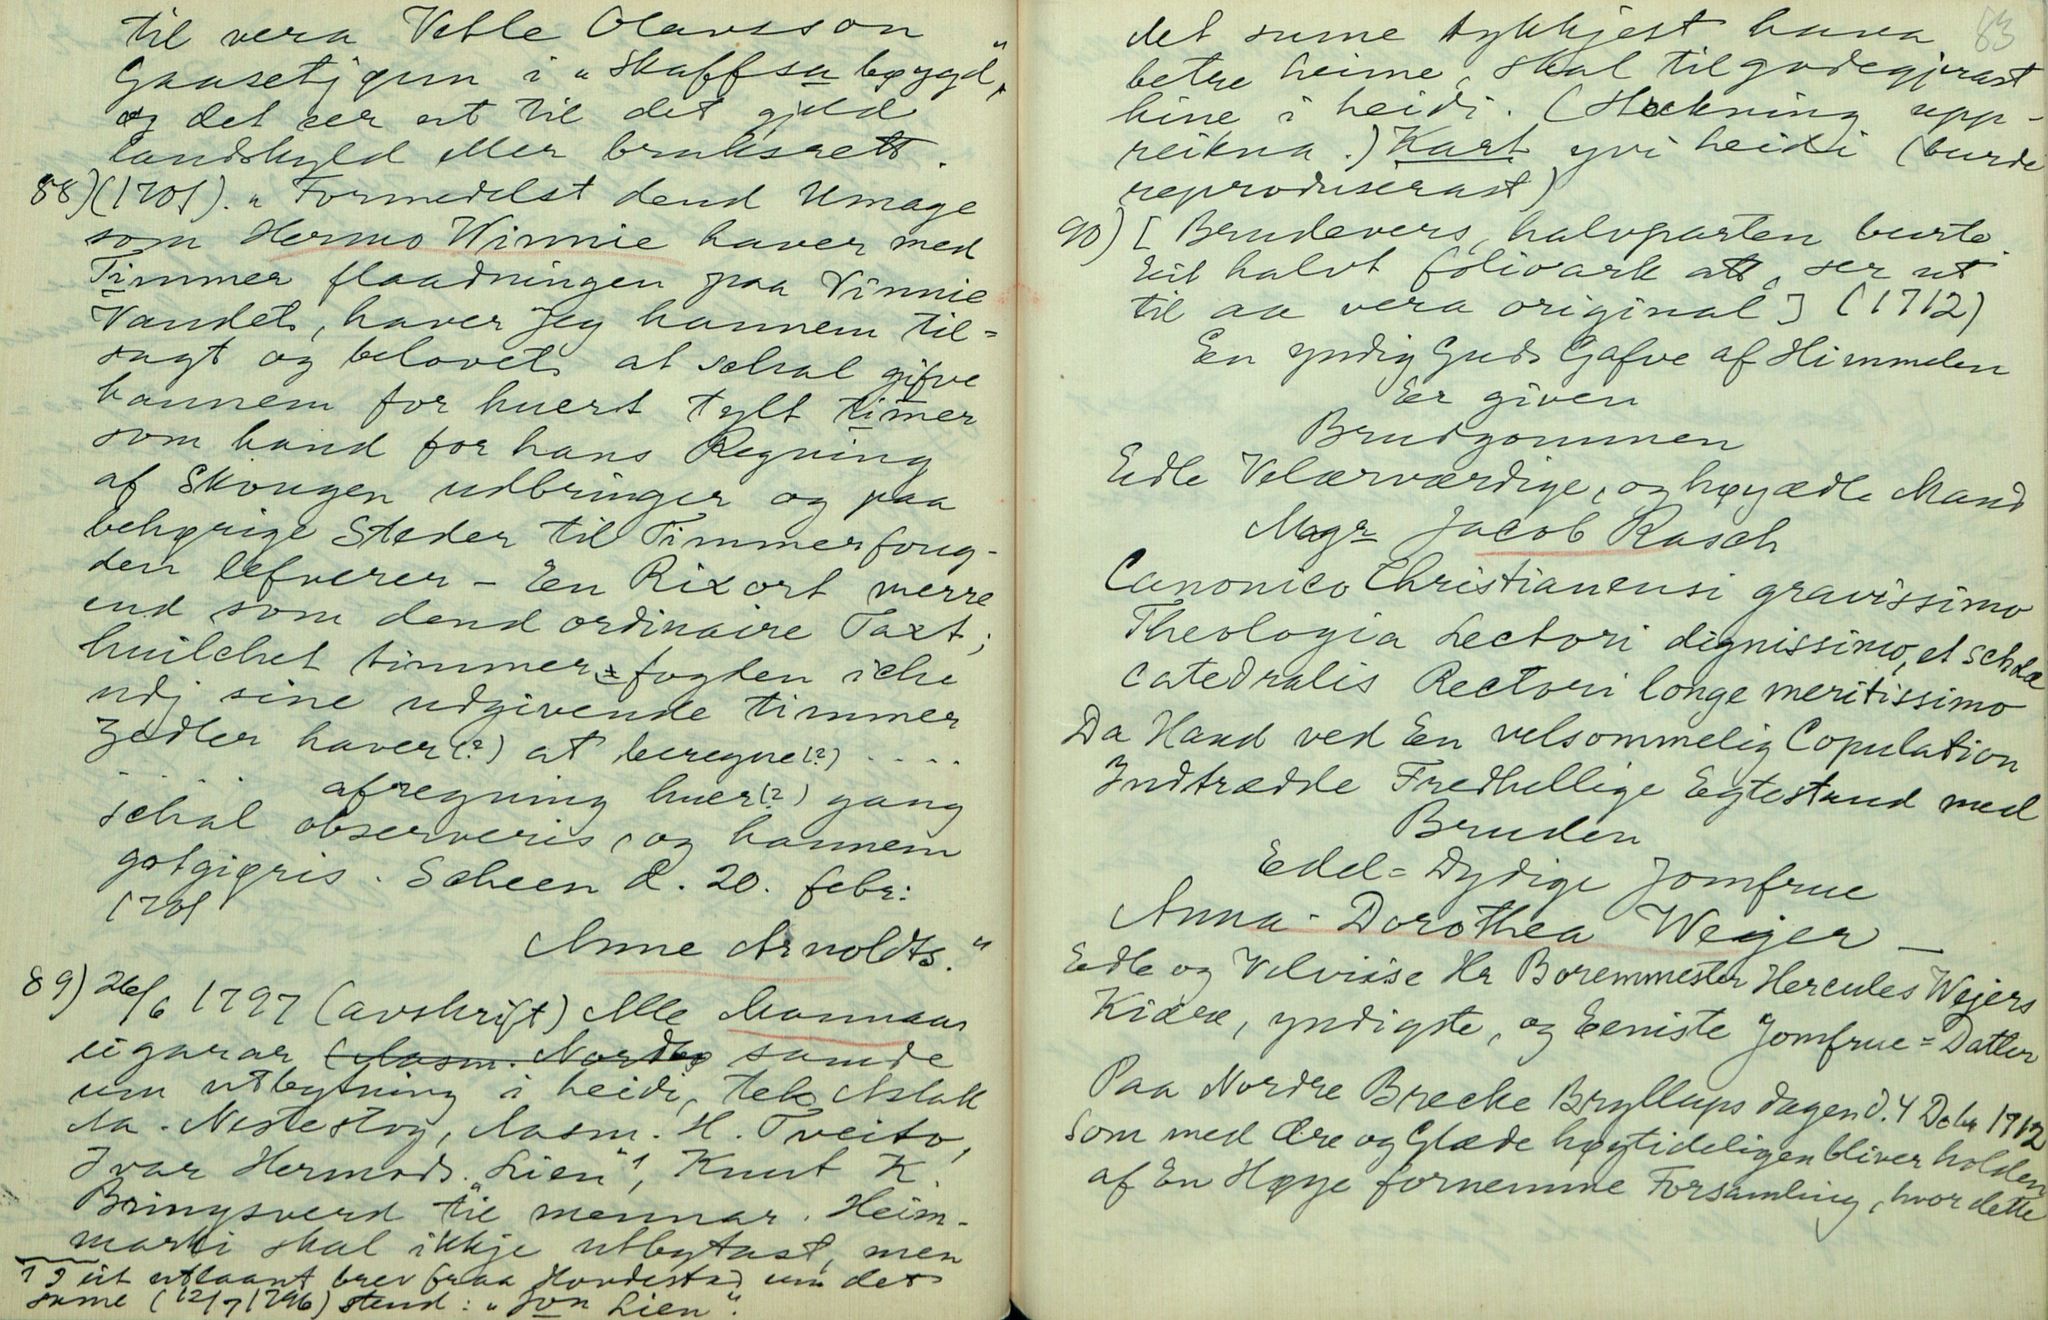 til vera Vetle Olavsson
Gaasetjønn i "Skaffsa bøygd",
og det ser ut til det gjeld
landskyld eller bruksrett.
88) (1701). "Formedelst dend Umage
som Hermo Winnie haver med
Timmer flaadningen paa Vinnie
Vandet, haver Jeg hannem til=
sagt og belovet at schal gifve
hannem for huert tylt timer
som hand for hans Regning
af Skougen udbringer og paa
behørige Steder til Timmerfoug-
den lefverer - En Rixort merre
end som dend ordinaire Taxt;
huilchet timmer=fogden iche
udj sine udgivende timmer
Zedler haver(?) at beregne(?) .....
afregning huer(?) gang
schal observeris, og hannem
gotgiøris. Scheen d. 20. febr:
1701
Anne Arnoldts."
89) 26/6 1797 (avskrift) Alle Mannaas
eigarar (Aasm. Nordbø samde
um utbytning i heidi, tek Aslak
Aa. Nistestog, Aasm. H. Tveito,
Ivar Hermods. "Lien"1, Knut K.
Bringsverd til mennar. Heim-
marki skal ikkje utbytast, men
1 I eit utlaant brev fraa Hovdestad um det
same (12/7 1796) stend: "Jon Lien".
83
det sume tykkjest hava
betre heime, skal tilgodegjerast
hine i heidi. (Stekning upp-
reikna.) Kart yvi heidi (burde
reproduserast)
90) [Brudevers, halvparten burte.
Eit halvt folioark att, ser ut
til aa vera original] (1712)
En yndig Guds Gafve af Himmelen
Er given
Brudgommen
Edle Velærværdige, og høyædle Mand
Magr Jacob Rasch
Canonico Christianensi gravissimo
Theologia Lectori dignissimo, et scholæ
catedralis Rectori longe meritissimo
Da Hand ved En velsommelig Copulation
Indtrædde Fredhellige Egtestand med
Bruden
Edel=Dydige Jomfrue
Anna-Dorothea Weyer -
Edle og Velviise Hr Boremmester Hercules Wejers
Kiære, yndigste, og Eeniste Jomfrue=Datter
Paa Nordre Brecke Bryllups dagen d. 4 Debr 1712
Som med Ære og Glæde høytideligen bliver holden
af En Høye fornemme Forsamling, hvor dette